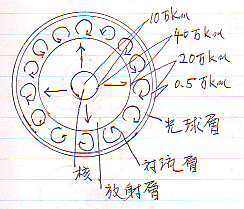 10万km
40万km
20万km
0.5万km
光球層
対流層
放射層
核